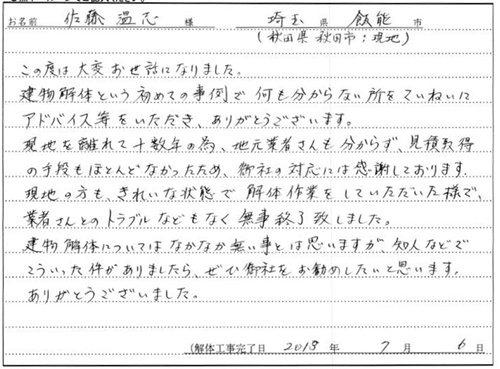 お名前 佐藤 温志 様 埼玉 県 飯能 市
(秋田県 秋田市:現地)
この度は大変お世話になりました。
建物解体という初めての事例で何も分からない所をていねいに
アドバイス等をいただき、ありがとうございます。
現地を離れて十数年の為、地元業者さんも分からず、見積取得
の手段もほとんどなかったため、御社の対応には感謝しております。
現地の方も、きれいな状態で解体作業をしていただいた様で、
業者さんとのトラブルなどもなく無事終了致しました。
建物解体についてはなかなか無い事とは思いますが、知人などで
こういった件がありましたら、ぜひ御社をお勧めしたいと思います。
ありがとうございました。
(解体工事完了日 2018 年 7 月 6 日